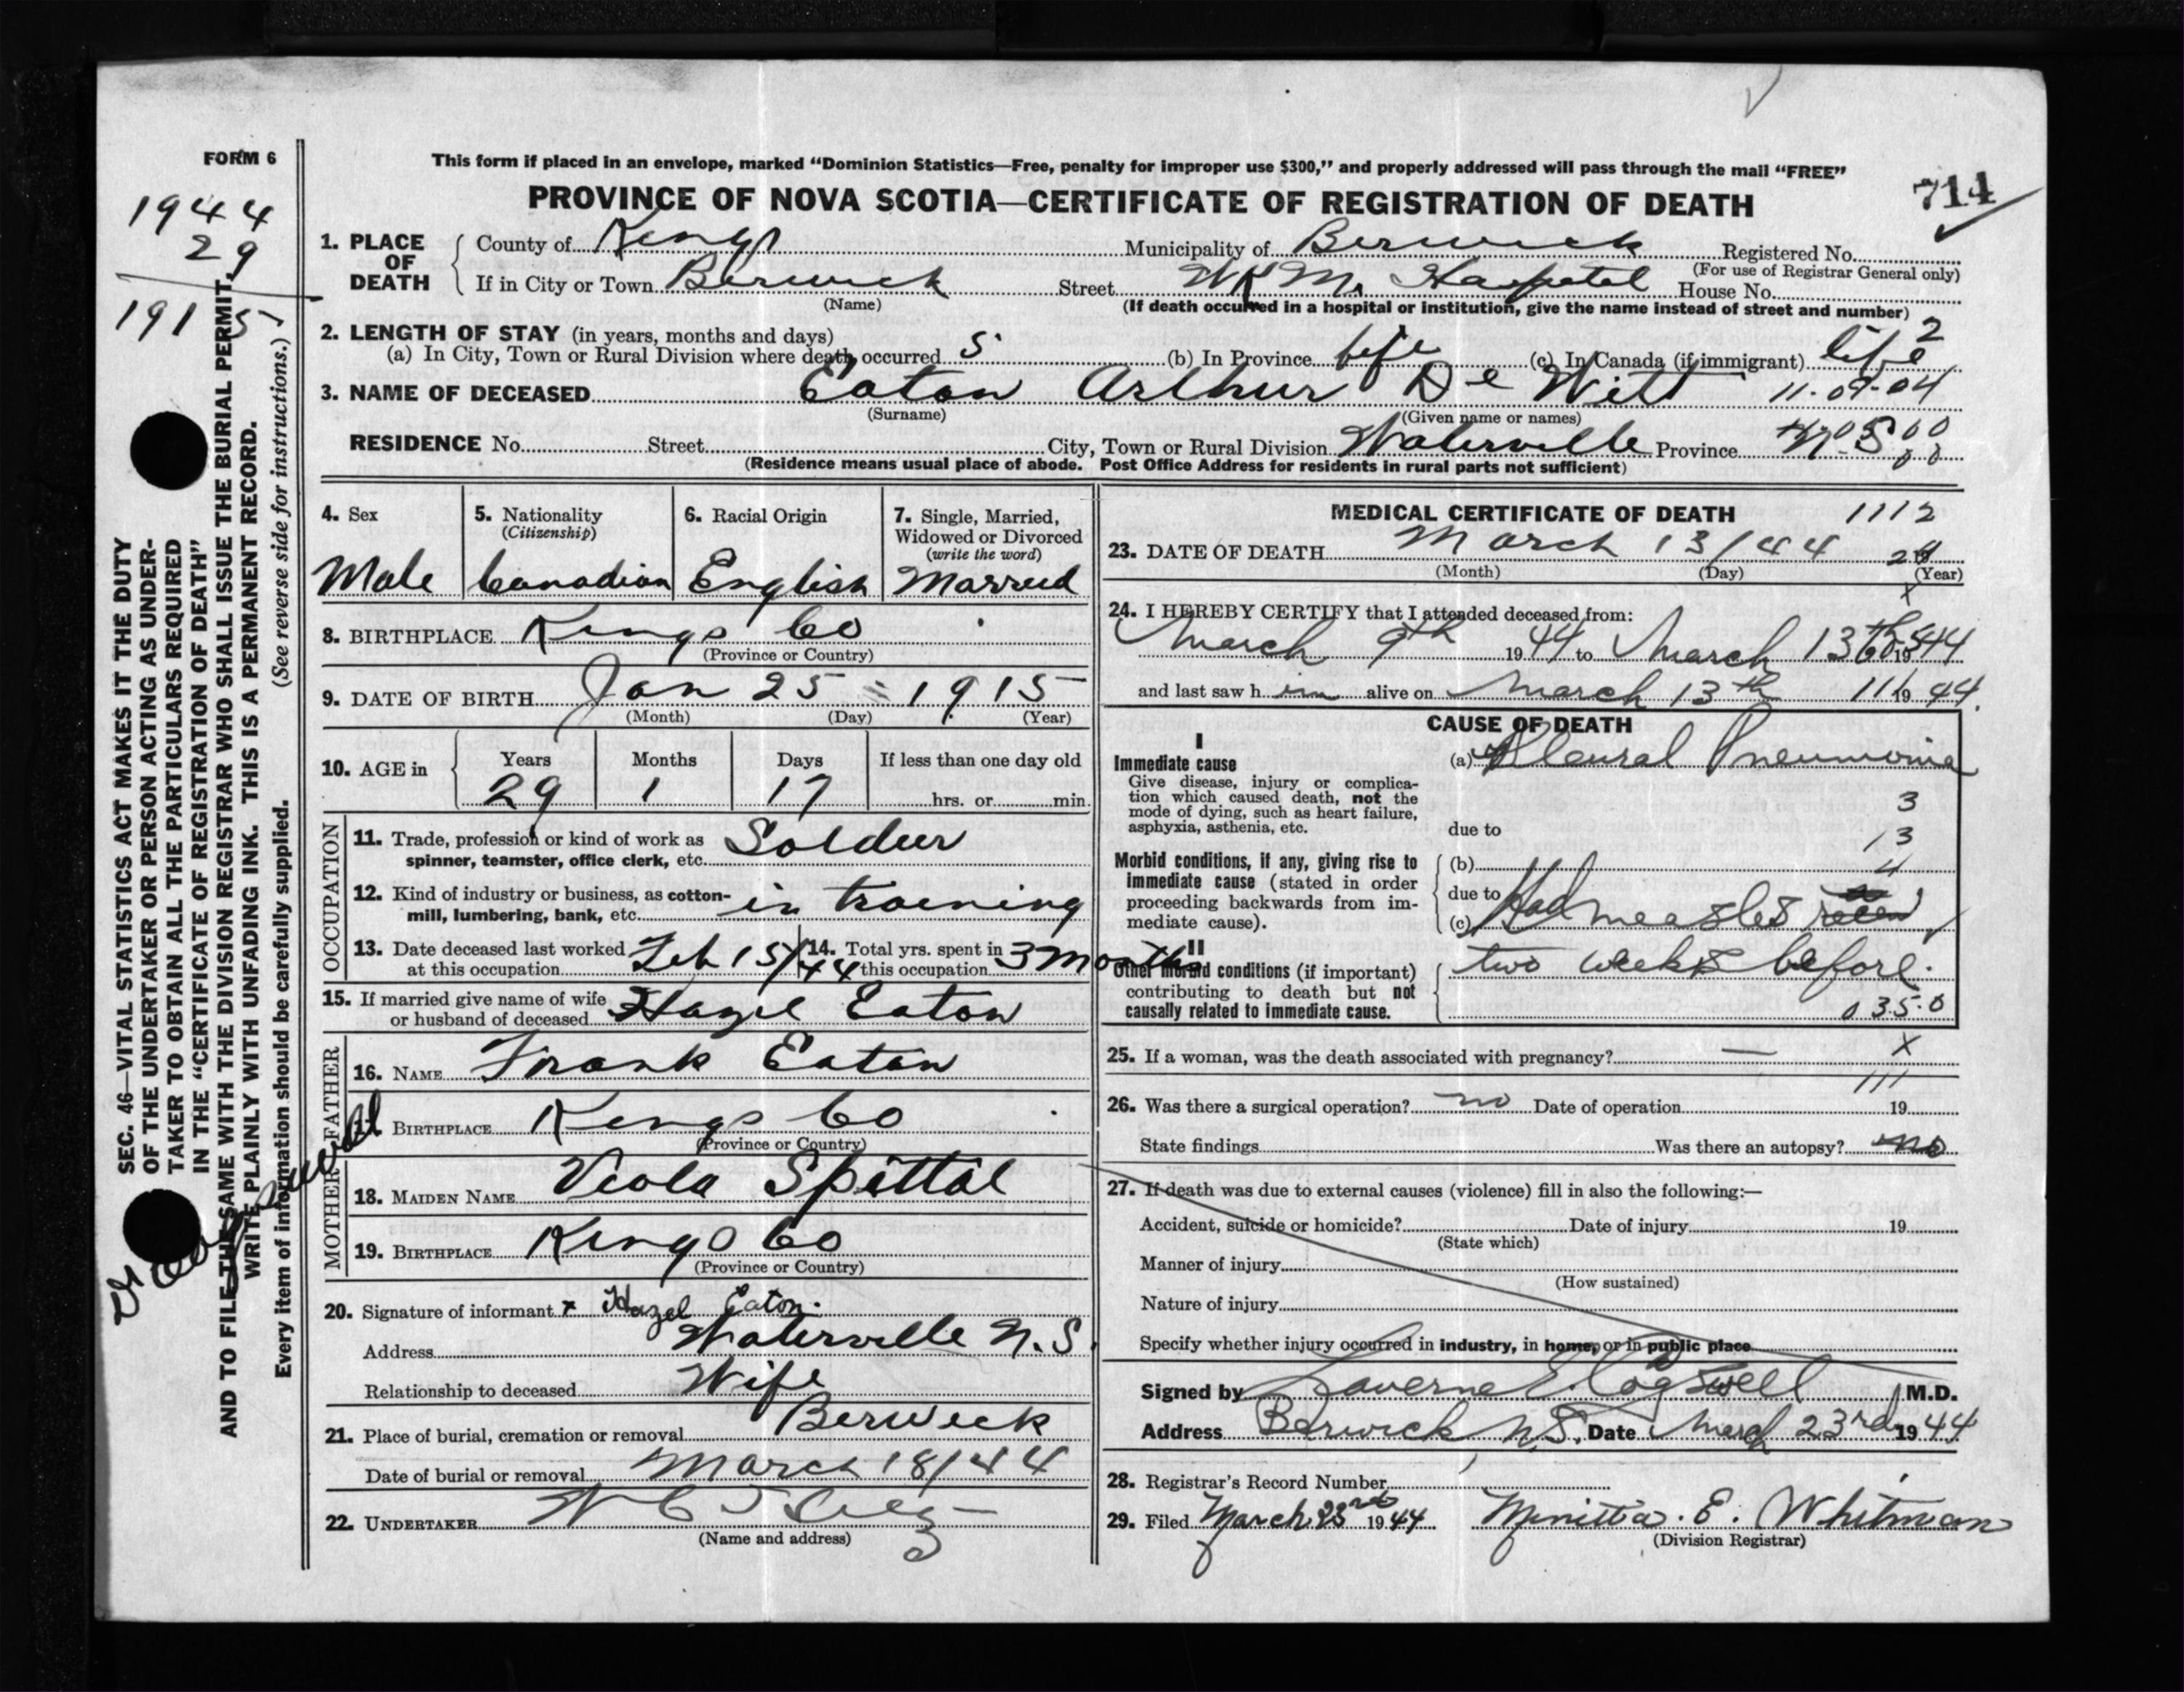 FORM 6
This form if placed in an envelope, marked "Dominion Statistics—Free, penalty for improper use $300," and properly addressed will pass through the mail "FREE"
PROVINCE OF NOVA SCOTIA—CERTIFICATE OF REGISTRATION OF DEATH
714
1944
29
1915
1. PLACE OF DEATH County of Kings Municipality of Berwick Registered No.
(For use of Registrar General only)
If in City or Town Berwick Street W K M. Hospital House No.
(Name) (If death occurred in a hospital or institution, give the name instead of street and number)
2. LENGTH OF STAY (in years, months and days) 2
(a) In City, Town or Rural Division where death occurred 5 (b) In Province life (c) In Canada (if immigrant) life
3. NAME OF DECEASED Eaton Arthur De Witt 11-09-04
(Surname) (Given name or names)
RESIDENCE No. Street City, Town or Rural Division Waterville Province N.S.
(Residence means usual place of abode. Post Office Address for residents in rural parts not sufficient)
4. Sex 5. Nationality (Citizenship) 6. Racial Origin 7. Single, Married, Widowed or Divorced (write the word)
Male Canadian English Married
8. BIRTHPLACE Kings Co
(Province or Country)
9. DATE OF BIRTH Jan 25 1915
(Month) (Day) (Year)
10. AGE in Years Months Days If less than one day old
29 1 17 hrs. or min.
OCCUPATION
11. Trade, profession or kind of work as spinner, teamster, office clerk, etc. Soldier
12. Kind of industry or business, as cotton-mill, lumbering, bank, etc. in training
13. Date deceased last worked at this occupation Feb 15/44 14. Total yrs. spent in this occupation 3 months
15. If married give name of wife or husband of deceased Hazel Eaton
FATHER
16. NAME Frank Eaton
17. BIRTHPLACE Kings Co
(Province or Country)
MOTHER
18. MAIDEN NAME Viola Spittal
19. BIRTHPLACE Kings Co
(Province or Country)
20. Signature of informant x Hazel Eaton.
Address Waterville N.S.
Relationship to deceased Wife
21. Place of burial, cremation or removal Berwick
Date of burial or removal March 18/44
22. UNDERTAKER
(Name and address)
MEDICAL CERTIFICATE OF DEATH 1112
23. DATE OF DEATH March 13/44
(Month) (Day) (Year)
24. I HEREBY CERTIFY that I attended deceased from:
March 9th 1944 to March 13th 1944
and last saw him alive on March 13th 1944.
CAUSE OF DEATH
I
Immediate cause
Give disease, injury or complication which caused death, not the mode of dying, such as heart failure, asphyxia, asthenia, etc.
(a) Pleural Pneumonia
3
due to 13
Morbid conditions, if any, giving rise to immediate cause (stated in order proceeding backwards from immediate cause).
(b)
due to
(c) Had measles
II
Other morbid conditions (if important) contributing to death but not causally related to immediate cause.
two weeks before.
0350
25. If a woman, was the death associated with pregnancy? — X
111
26. Was there a surgical operation? no Date of operation 19
State findings Was there an autopsy? no
27. If death was due to external causes (violence) fill in also the following:—
Accident, suicide or homicide? Date of injury 19
(State which)
Manner of injury
(How sustained)
Nature of injury
Specify whether injury occurred in industry, in home, or in public place
Signed by Laverne E. Cogswell M.D.
Address Berwick N.S. Date March 23rd 1944
28. Registrar's Record Number
29. Filed March 23rd 1944 Minitta. E. Whitman
(Division Registrar)
SEC. 46—VITAL STATISTICS ACT MAKES IT THE DUTY
OF THE UNDERTAKER OR PERSON ACTING AS UNDER-
TAKER TO OBTAIN ALL THE PARTICULARS REQUIRED
IN THE "CERTIFICATE OF REGISTRATION OF DEATH"
AND TO FILE THE SAME WITH THE DIVISION REGISTRAR WHO SHALL ISSUE THE BURIAL PERMIT.
WRITE PLAINLY WITH UNFADING INK. THIS IS A PERMANENT RECORD.
Every item of information should be carefully supplied. (See reverse side for instructions.)